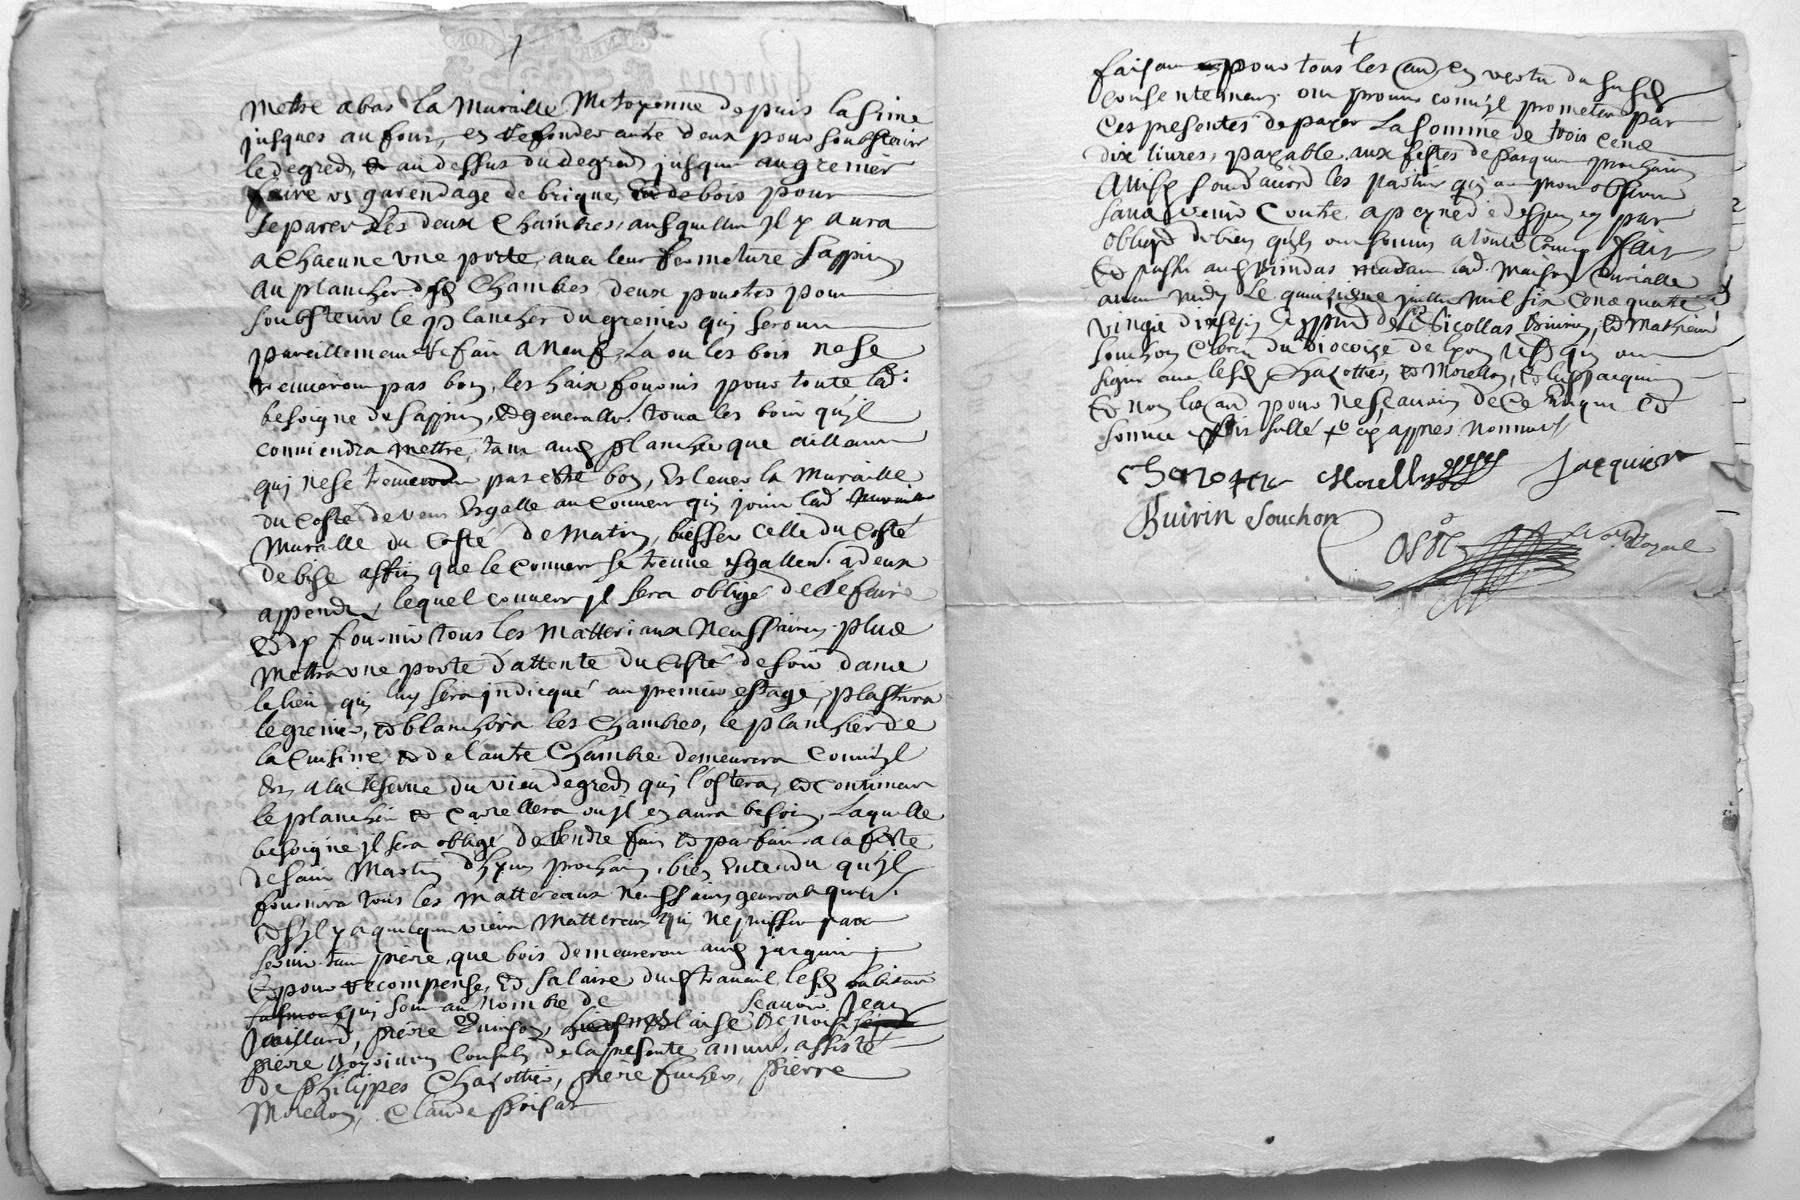 mettre abas la muraille mitoyenne depuis la sime
jusques au four, et refonder autre deux pour soubstenir
le degred, au dessus du degred jusques au grenier
faire un garendage de brique, de bois pour
separer les deux chambres, ausquelles il y aura
a chacune une porte, avec leur fermeture sappin
au plancher desd chambres deux poustes pour
soubstenir le plancher du grenier qui seront
pareillement refait a neuf, la ou les bois ne se
treuveront pas bon, les haix fournis pour toute lad.
besoigne de sappin, et generallemt tous les bois qu'il
conviendra mettre, tant ausd plancher que ailleurs
qui ne se treuveront pas estre bon, eslever la muraille
du costé de vent esgalle au couvert qui joint lad
muraille du costé de matin, biesser celle du costé
de bise affin que le couvert se treuve esgallemt a deux
appendz, lequel couvert il sera obligé de refaire
et dy fournir tous les matteriaux necessaires, plus
mettra une porte d'attente du costé de soir dans
le lieu qui luy sera indicqué au premier estage, plastrira
le grenier, et blanchira les chambres, le plancher de
la cuisine et de l'autre chambre demeurera comm'il
est, a la reserve du vieu degred qui l'ostera, et continuera
le plancher et carrellera ou il en aura besoin, laquelle
besoigne il sera obligé de rendre fait et parfait a la feste
de saint Martin d'hyver prochain, bien entendu qu'il
fournira tous les mattereaux necessaires
et s'il y a quelques vieux mattereaux qui ne puissent pas
servir tant piere, que bois demeureront aud jacquier
et pour recompense, et salaire dud travail lesd habitans
qui sont au nombre de scavoir Jean
Jaillard, piere, Benoist
piere consulz de la presente annee, assisté
de philippes Chazottier, piere, pierre
Morellon, Claude
faisant pour tous les en vertu du susd
consentement ont promis comm'il promettent par
ces presentes de payer la somme de trois cens
dix livres, payable aux festes de pasques prochain
Ainsy sont d'accord les parties qui ont promis observer
sans venir contre, a peyne de despens et par
obligé de biens qu'ils ont soumis a toutes cours fait
et passé ausd maison curialle
avant midy le quinzieme juillet mil six cens quatre
vingt dix sept en pnce de Sr Nicollas Buirin, et Mathieu
Souchon clerc du diocoize de lyon tesd qui ont
signé avec lesd Chazottier, et Morellon, et led jacquier
et non les au pour ne scavoir de ce enquis et
sommé cy appres nommés
chazotier Morellon Jacquier
Buirin Souchon
Royal